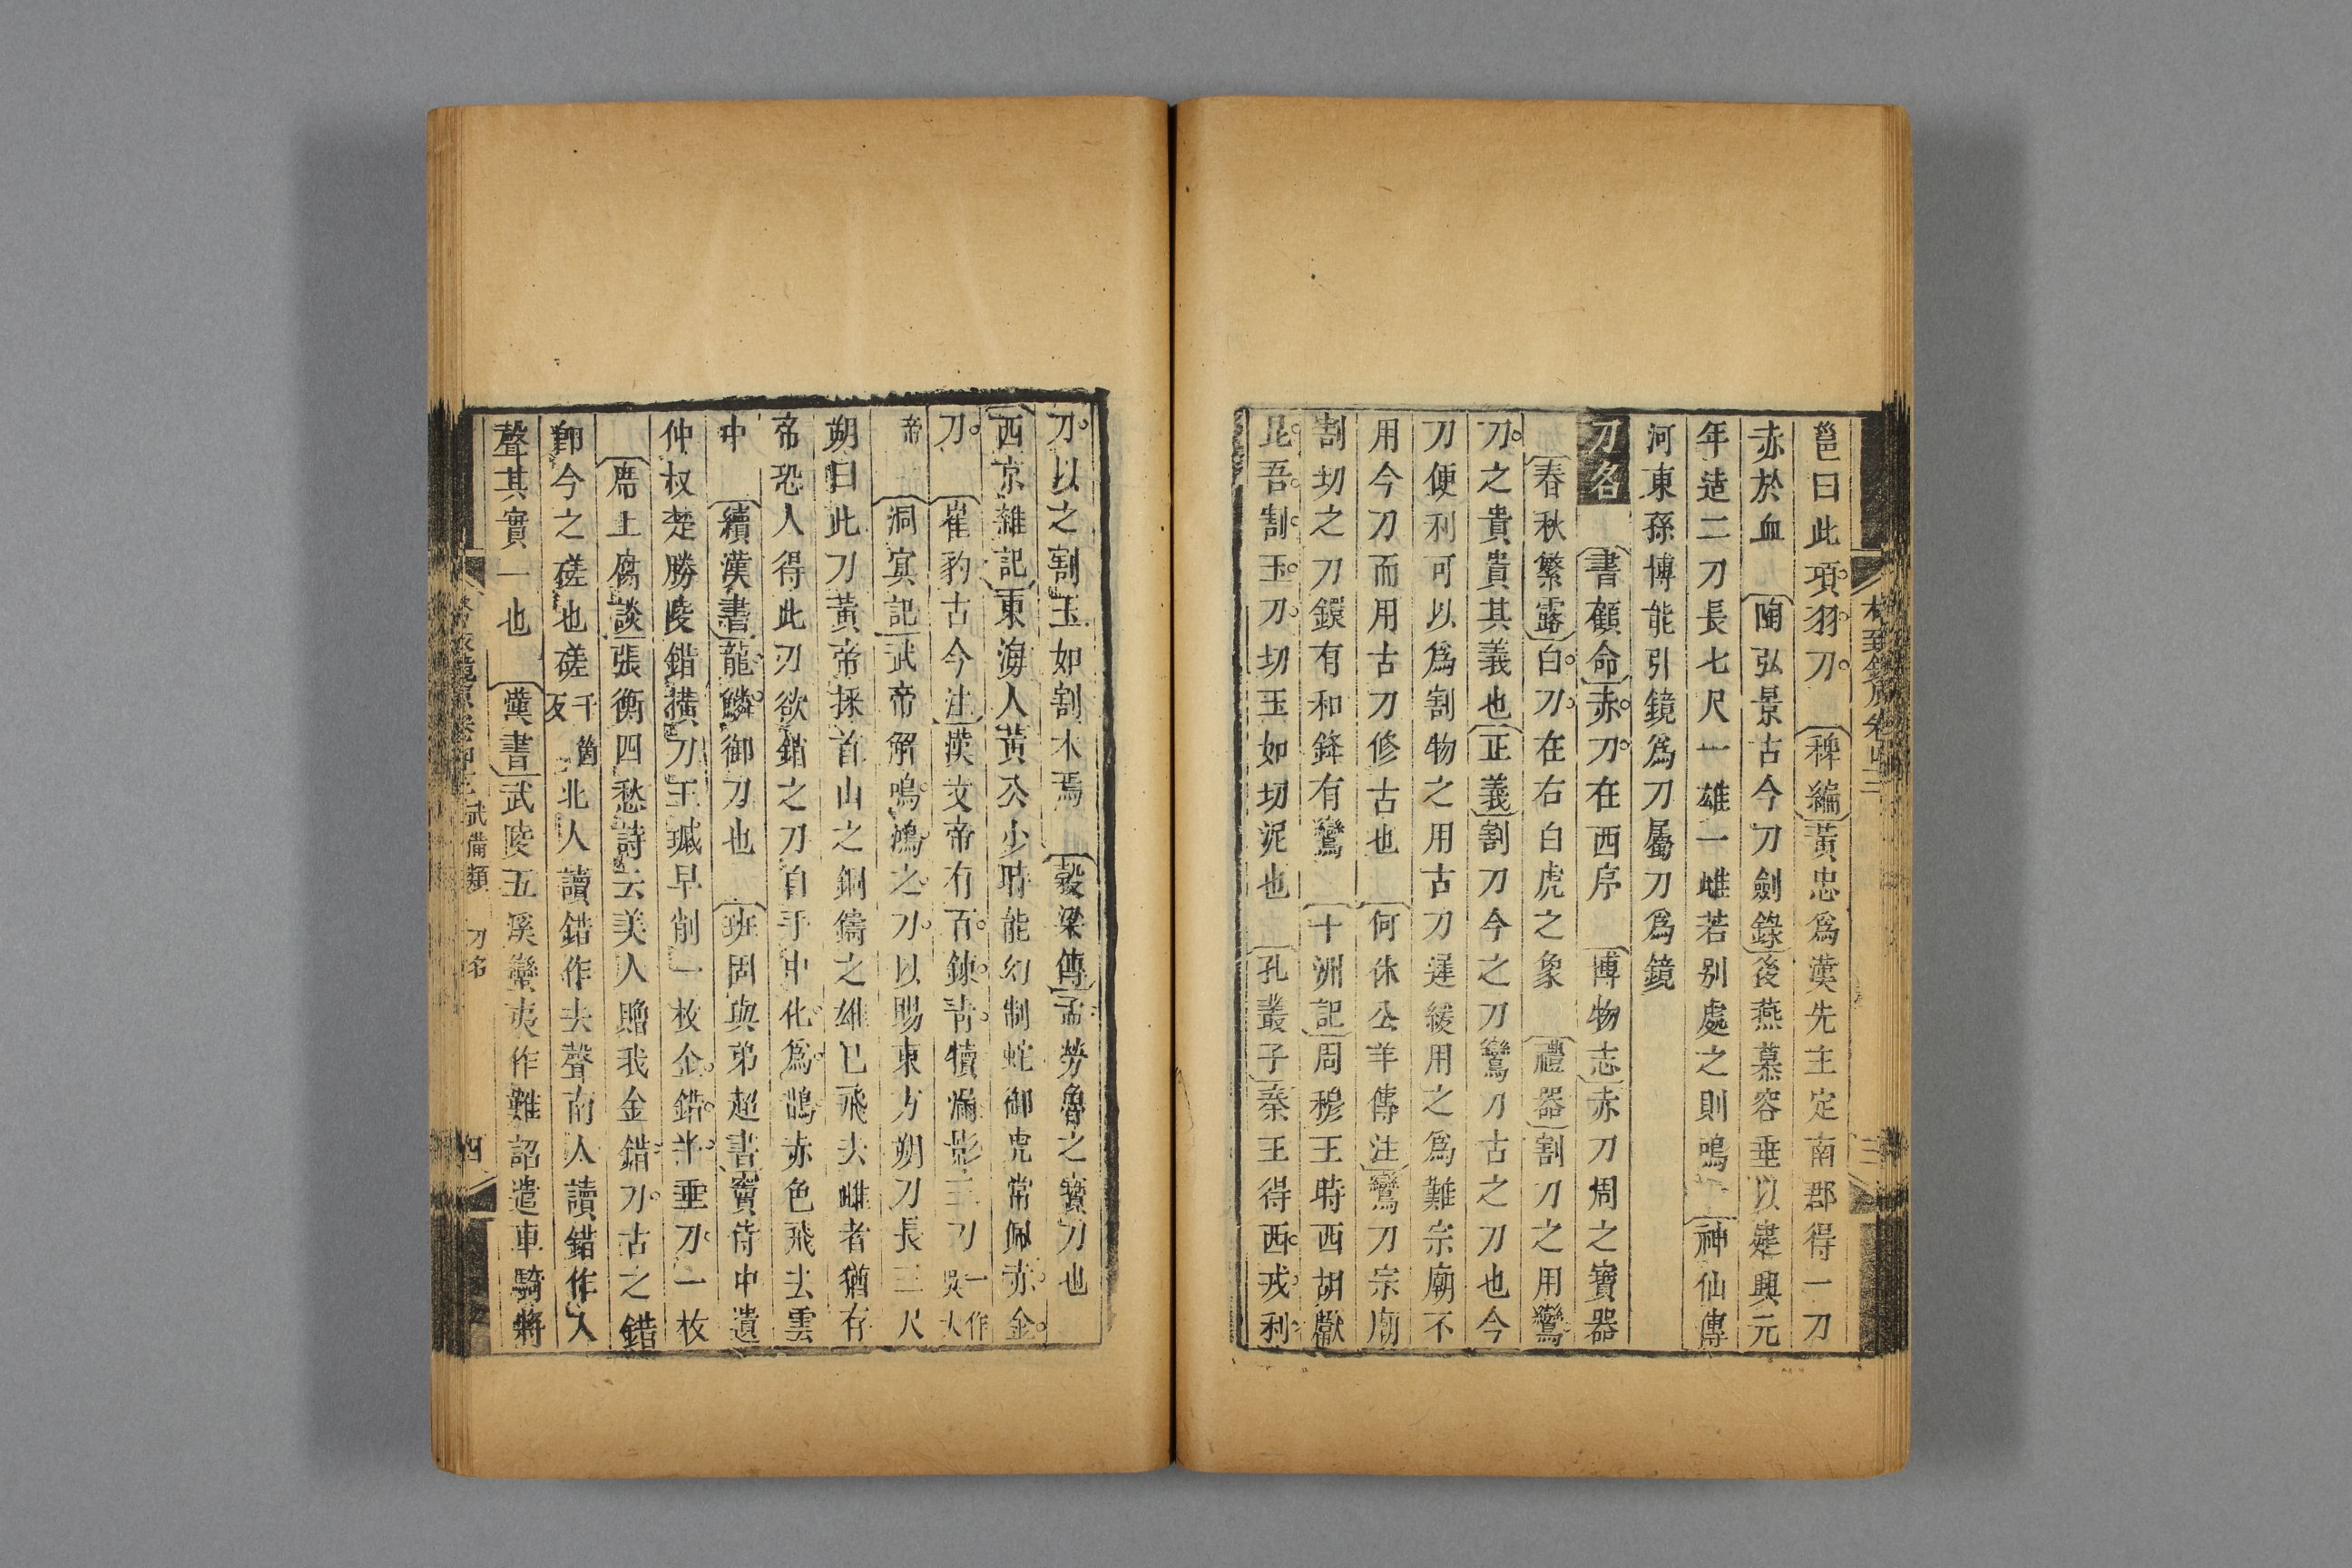 邕曰此項羽刀 稗編黃忠爲漢先主定南郡得一刀
赤於血 陶弘景古今刀劍錄後燕慕容垂以建興元
年造二刀長七尺一雄一雌若别處之則鳴 神仙傳
河東孫博能引鏡爲刀屬刀爲鏡
刀名 書顧命赤刀在西序 博物志赤刀周之寶器
春秋繁露白刀在右白虎之象 禮器割刀之用鸞
刀之貴貴其義也正義割刀今之刀鸞刀古之刀也今
刀便利可以爲割物之用古刀遲緩用之爲難宗廟不
用今刀而用古刀修古也 何休公羊傳注鸞刀宗廟
割切之刀鐶有和鋒有鸞 十洲記周穆王時西胡獻
昆吾割玉刀切玉如切泥也 孔叢子秦王得西戎利
刀以之割玉如割木焉 穀梁傳孟勞魯之寶刀也
西京雜記東海人黃公少時能幻制蛇御虎常佩赤金
刀 崔豹古今注漢文帝有百鍊青犢漏影三刀一作吳大
帝 洞冥記武帝解鳴鴻之刀以賜東方朔刀長三尺
朔曰此刀黃帝採首山之銅鑄之雄已飛去雌者猶存
帝恐人得此刀欲銷之刀自手中化爲鵲赤色飛去雲
中 續漢書龍鱗御刀也 班固與弟超書竇侍中遺
仲叔楚勝陵錯橫刀王瑊早削一枚金錯半垂刀一枚
席上腐談張衡四愁詩云美人贈我金錯刀古之錯
卽今之磋也磋千箇反北人讀錯作去聲南人讀錯作入
聲其實一也 漢書武陵五溪蠻夷作難詔遣車騎將
武備類 刀名 四